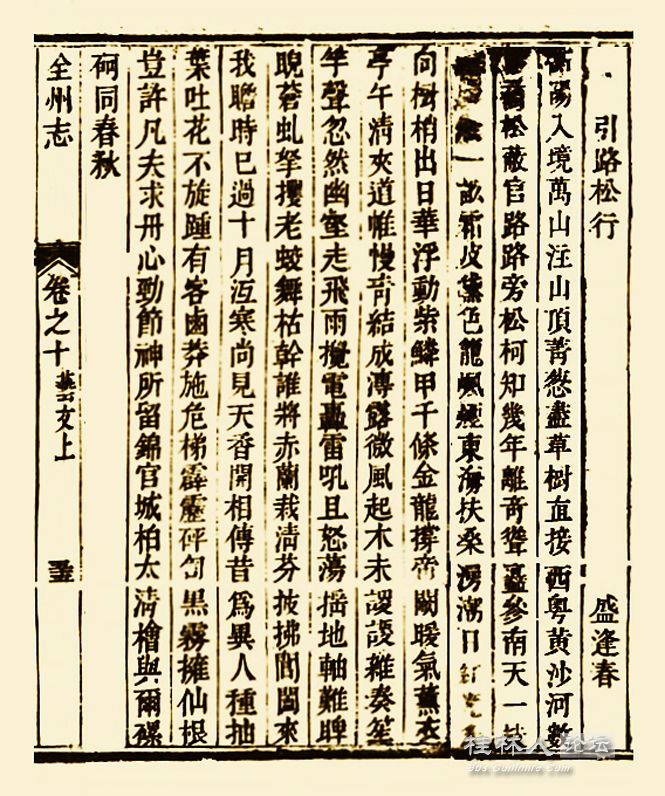 引路松行　盛逢春
衡陽入境萬山注山頂菁葱盡草樹直接西粵黃沙河數
喬松蔽官路路旁松柯知幾年離奇聳矗參南天一
一畝霜皮黛色籠飄煙東海扶桑湧湯日
向樹梢出日華浮動紫鱗甲千條金龍撐帝闕暖氣薰衣
亭午清夾道帷幔青結成漙露微風起木末謖謖雜奏笙
竽聲忽然幽壑走飛雨攪電轟雷吼且怒蕩搖地軸難睥
睨蒼虬拏攫老蛟舞枯幹誰將赤蘭栽清芬披拂閶闔來
我瞻時已過十月冱寒尚見天香開相傳昔爲異人種抽
葉吐花不旋踵有客鹵莽施危梯霹靂砰訇黑霧擁仙根
豈許凡夫求丹心勁節神所留錦官城柏太清檜與爾磥
砢同春秋
全州志　卷之十藝文上
桂林人论坛
Bbs.Guilinlife.com